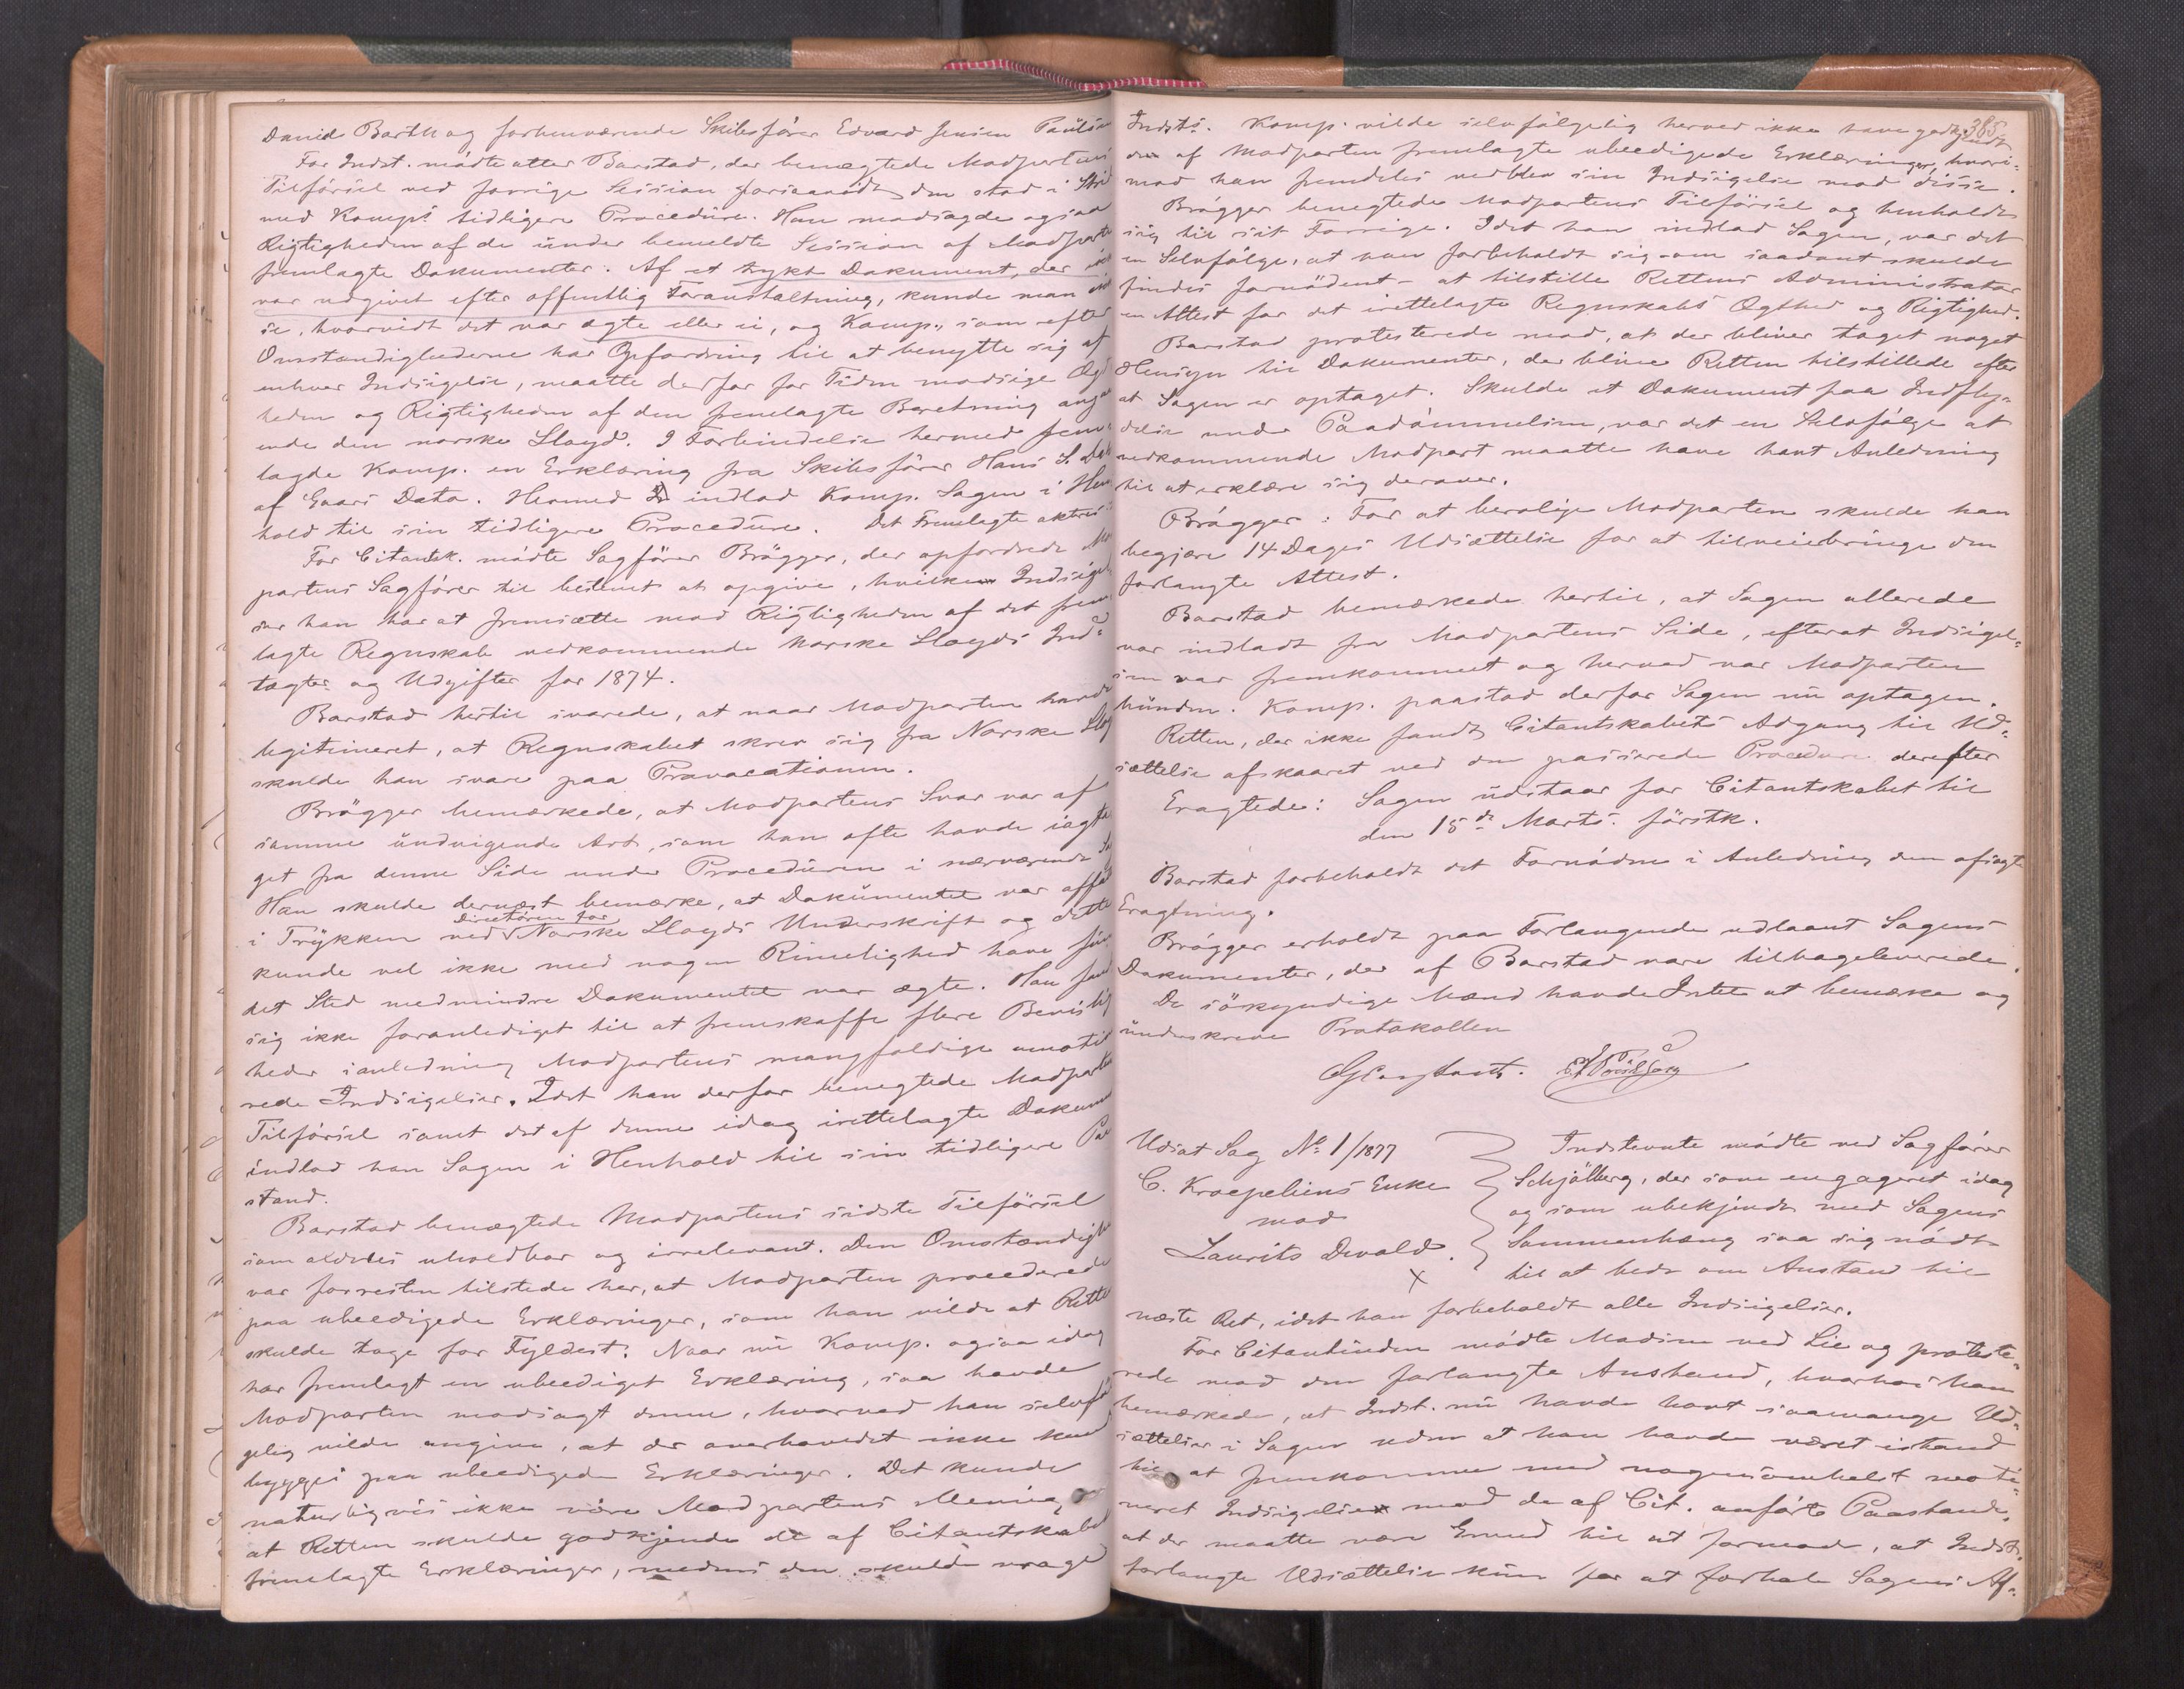 David Barth og forhenværende Skibsfører Edvard Jensen Paulsen
For Indst. mødte atter Barstad, der benægtede Modpartens
Tilførsel ved forrige Session forsaavidt den stod i Strid
med Komp's tidligere Procedüre. Han modsagde ogsaa
Rigtigheden af de ünder bemeldte Session af Modparten
fremlagte Dokumenter. Af et trykt Dokument, der ikke
var udgivet efter offentlig Foranstaltning, kunde man ikke
se, hvorvidt det var ægte eller ei, og Komp., som efter
Omstændighederne har Opfordring til at benytte sig af
enhver Indsigelse, maatte derfor for Tiden modsige Ægt
heden og Rigtigheden af den fremlagte Beretning angaa
ende den norske Lloyd. I Forbindelse hermed frem-
lagde Komp. en Erklæring fra Skibsfører Hans S.
af Gaars Dato. Hermed indlod Komp. Sagen i Hen
hold til sin tidligere Procedüre. Det Fremlagte aktes:
For Citantsk. mødte Sagfører Brøgger, der opfordrede Mod
partens Sagfører til bestemt at opgive, hvilken Indsigel
ser han har at fremsætte mod Rigtigheden af det frem
lagte Regnskab vedkommende Norske Lloyds Ind-
tægter og Udgifter for 1874.
Barstad hertil svarede, at naar Modparten havde
legitimeret, at Regnskabet skrev sig fra Norske Lloyd
skulde han svare paa Provocationen.
Brøgger bemærkede, at Modpartens Svar var af
samme ündvigende Art, som han ofte havde iagtta
get fra denne Side under Procedüren i nærværende Sag
Han skulde dernæst bemærke, at Dokümentet var affat
Directøren for
i Trykken ved Norske Lloyds Underskrift og dette
kunde vel ikke med nogen Rimelighed have fün
det Sted medmindre Dokumentet var ægte. Han fandt
sig ikke foranlediget til at fremskaffe flere Bevislig
heder ianledning Modpartens mangfoldige umotive
rede Indsigelser. Idet han derfor benegtede Modparten
Tilførsel samt det af denne idag irettelagte Dokument
indlod han Sagen i Henhold til sin tidligere Paa
stand.
Barstad benægtede Modpartens sidste Tilførsel
som aldeles uholdbar og irrelevant. Den Omstændighed
var forresten tilstede her, at Modparten procederede
paa ubeedigede Erklæringer, som han vilde at Retten
skulde tage for Fyldest. Naar nü Komp. ogsaa idag
har fremlagt en ubeediget Erklæring, saa havde
Modparten modsagt denne, hvorved han selvføl
gelig vilde angive, at der overhovedet ikke kund
bygges paa ubeedigede Erklæringer. Det kunde
naturligvis ikke være Modpartens Mening,
at Retten skulde godkjende de af Citantskabet
fremlagte Erklæringer, medens den skulde vrage
385
Indsts. Komp. vilde selvfølgelig herved ikke have godkjendt
de af Modparten fremlagte ubeedigede Erklæringer, hvori-
mod han fremdeles vedblev sin Indsigelse mod disse.
Brøgger benegtede Modpartens Tilførsel og henholdt
sig til sit Forrige. Idet han indlod Sagen, var det
en Selvfølge, at han forbeholdt sig – om saadant skulde
findes fornødent – at tilstille Rettens Administrator
en Attest for det irettelagte Regnskabs Ægthed og Rigtighed.
Barstad protesterede mod, at der bliver taget noget
Hensyn til Dokumenter, der blive Retten tilstillede efter
at Sagen er optaget. Skulde et Dokument faa Indfly-
delse under Paadømmelsen, var det en Selvfølge at
vedkommende Modpart maatte have havt Anledning
til at erklære sig derover.
Brøgger: For at berolige Modparten skulde han
begjære 14 Dages Udsættelse for at tilveiebringe den
forlangte Attest.
Barstad bemærkede hertil, at Sagen allerede
var indladt fra Modpartens Side, efterat Indsigel-
sen var fremkommet og herved var Modparten
bünden. Komp. paastod derfor Sagen nü optagen.
Retten, der ikke fandt Citantskabets Adgang til Ud-
sættelse afskaaret ved den passerede Procedure derefter
Eragtede: Sagen üdstaar for Citantskabet til
den 15de Marts. førstk.
Barstad forbeholdt det Fornødne i Anledning den afsagte
Eragtning.
Brøgger erholdt paa Forlangende udlaant Sagens
Dokumenter, der af Barstad vare tilbageleverede.
De søkyndige Mænd havde Intet at bemærke og
ünderskreve Protokollen
Udsat Sag No 1/1877
C. Kroepeliens Enke
mod
Laurits Devold.
Indstevnte mødte ved Sagfører
Schjølberg, der som engageret idag
og som ubekjendt med Sagens
Sammenhæng saa sig nødt
til at bede om Anstand til
næste Ret, idet han forbeholdt alle Indsigelser.
For Citantinden mødte Madsen ved Lie og proteste-
rede mod den forlangte Anstand, hvorhos han
bemærkede, at Indst. nü havde havt saamange Ud-
sættelser i Sagen uden at han havde været istand
til at fremkomme med nogensomhelst moti-
veret Indsigelse mod de af Cit. anførte Paastande,
at der maatte være Grund til at formode, at Indsts.
forlangte Udsættelse kün for at forhale Sagens Af-